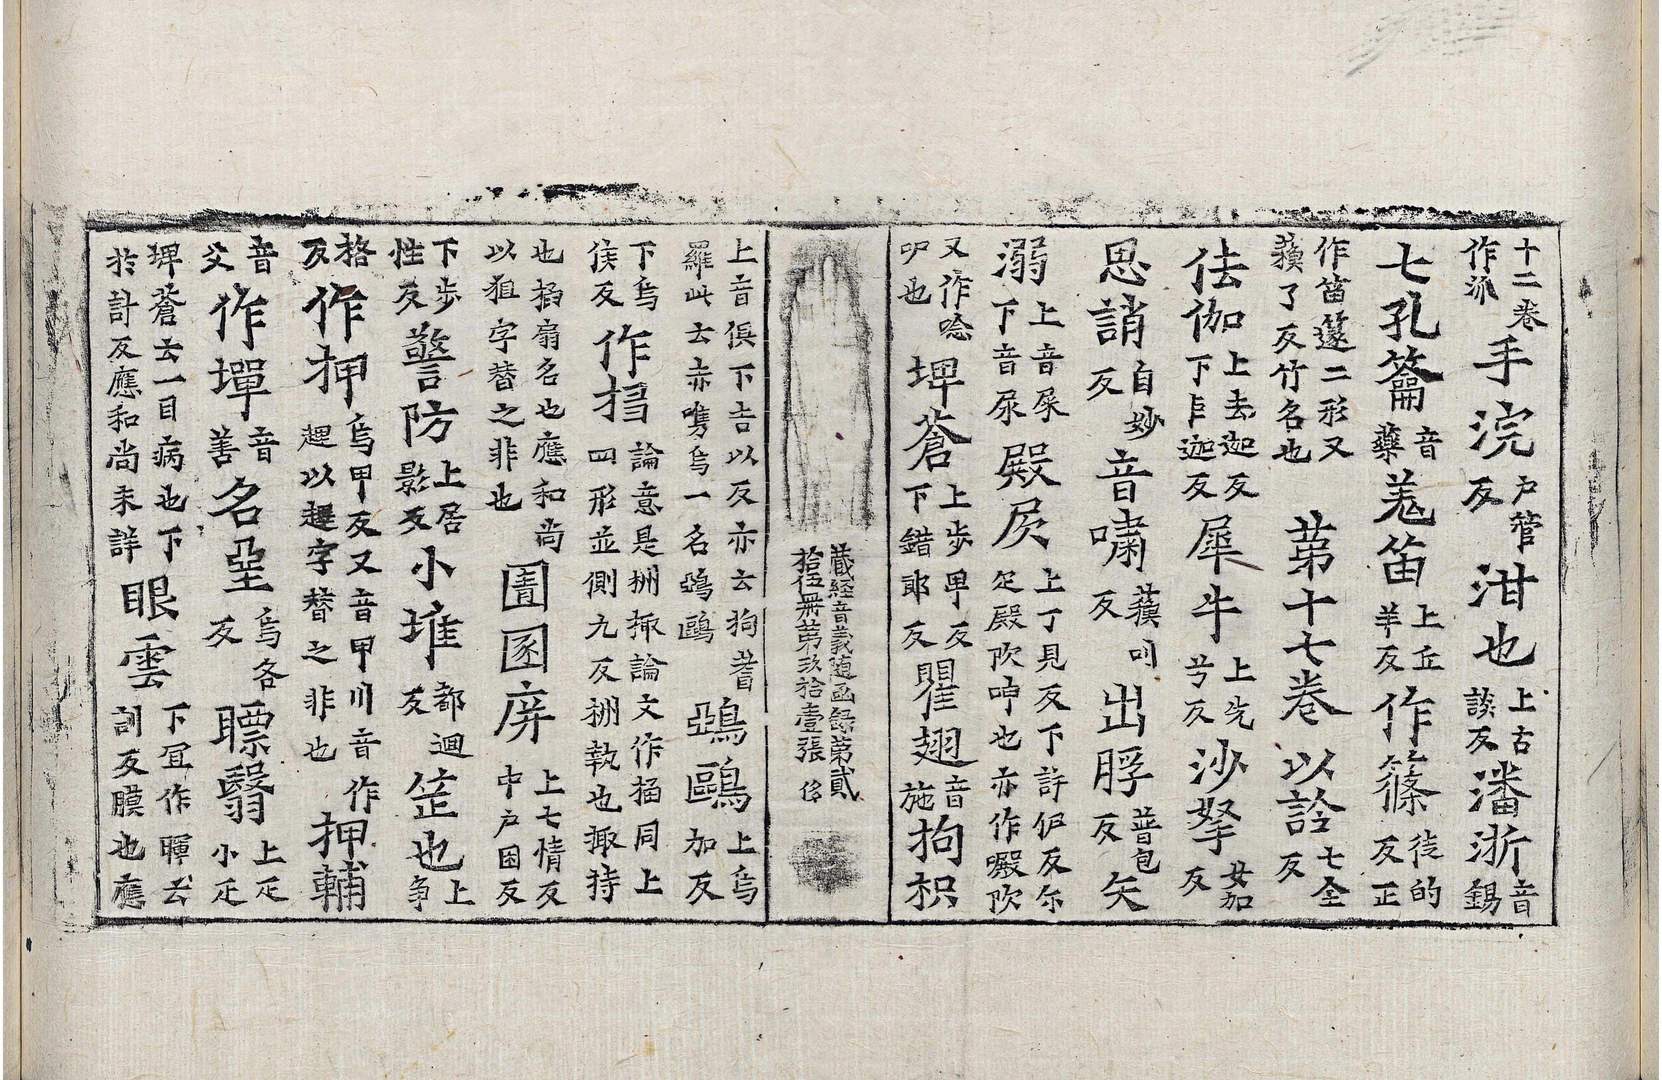 十二卷作泝手浣戶管反泔也上古談反潘淅音錫
七孔籥音藥羌笛上丘羊反作篠徒的反正
作笛篴二形又蘋了反竹名也第十七卷以詮七全反
佉伽上去迦反下𠂢迦反犀牛上先兮反沙拏女加反
思誚自妙反音嘯蘋叫反出脬普包反矢
溺上音屎下音尿殿屎上丁見反下許伊反尓疋殿吹呻也亦作唸吹
又作唸叩也埤蒼上步卑反下錯郎反瞿翅音施拘枳
藏経音義随函録第貳拾伍冊第玖拾壹張 侈
上音俱下吉以反亦云狗耆羅此云亦嘴烏一名鵶鷗鵶鷗上烏加反
下烏侯反作掴論意是掤掫論文作掴同上四形並側九反掤執也掫持
也掴扇名也應和尚以狙字替之非也圊圂屏上七情反中戶困反
下步性反警防上居影反小堆都迴反䇥也上争
格反作押烏甲反又音甲川音作𨄔以𨄔字替之非也押輔
音父作墠音善名堊烏各反瞟翳上疋小疋
埤蒼云一目病也下於計反應和尚未詳眼雲下冝作暉云訓反膜也應